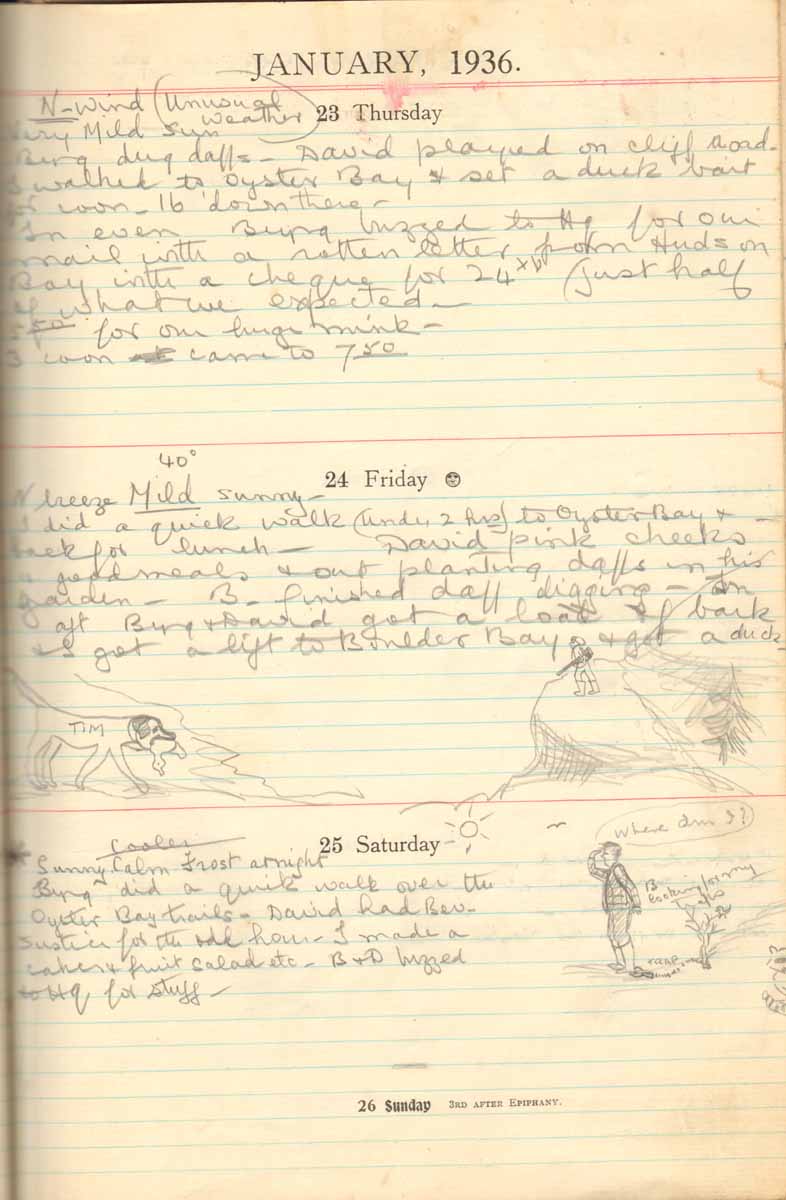 JANUARY, 1936.
N-wind (Unusual
weather)
23 Thursday
Very Mild Sun
Byrg dug daffs - David played on cliff road.
I walked to Oyster Bay & set a duck bait
for coon - 16 down there -
In even Byrg buzzed to Hq for our
mail with a rotten letter from Hudson
Bay with a cheque for 24 (just half
of what we expected -
5 50 for our huge mink -
3 coon came to 7 50
40°
24 Friday
N breeze Mild sunny -
I did a quick walk (under 2 hrs) to Oyster Bay &
back for lunch - David pink cheeks
& good meals & out planting daffs in his
garden - B- finished daff digging - In
aft Byrg & David got a load of bark
& I got a lift to Boulder Bay & got a duck
TIM
25 Saturday
Cooler
Sunny Calm Frost at night
Byrg did a quick walk over the
Oyster Bay trails - David had Bev.
Justice for the odd hour - I made a
cake & fruit salad etc - B & D buzzed
to Hq for stuff -
Where am I?
B looking for my
26 Sunday 3RD AFTER EPIPHANY.